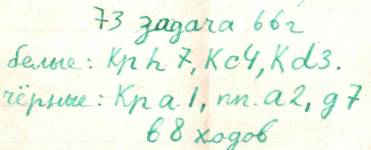 73 задача 66г
белые: Кр h7, Кc4, Кd3.
чёрные: Кр a1, пп. a2, g7
в 8 ходов